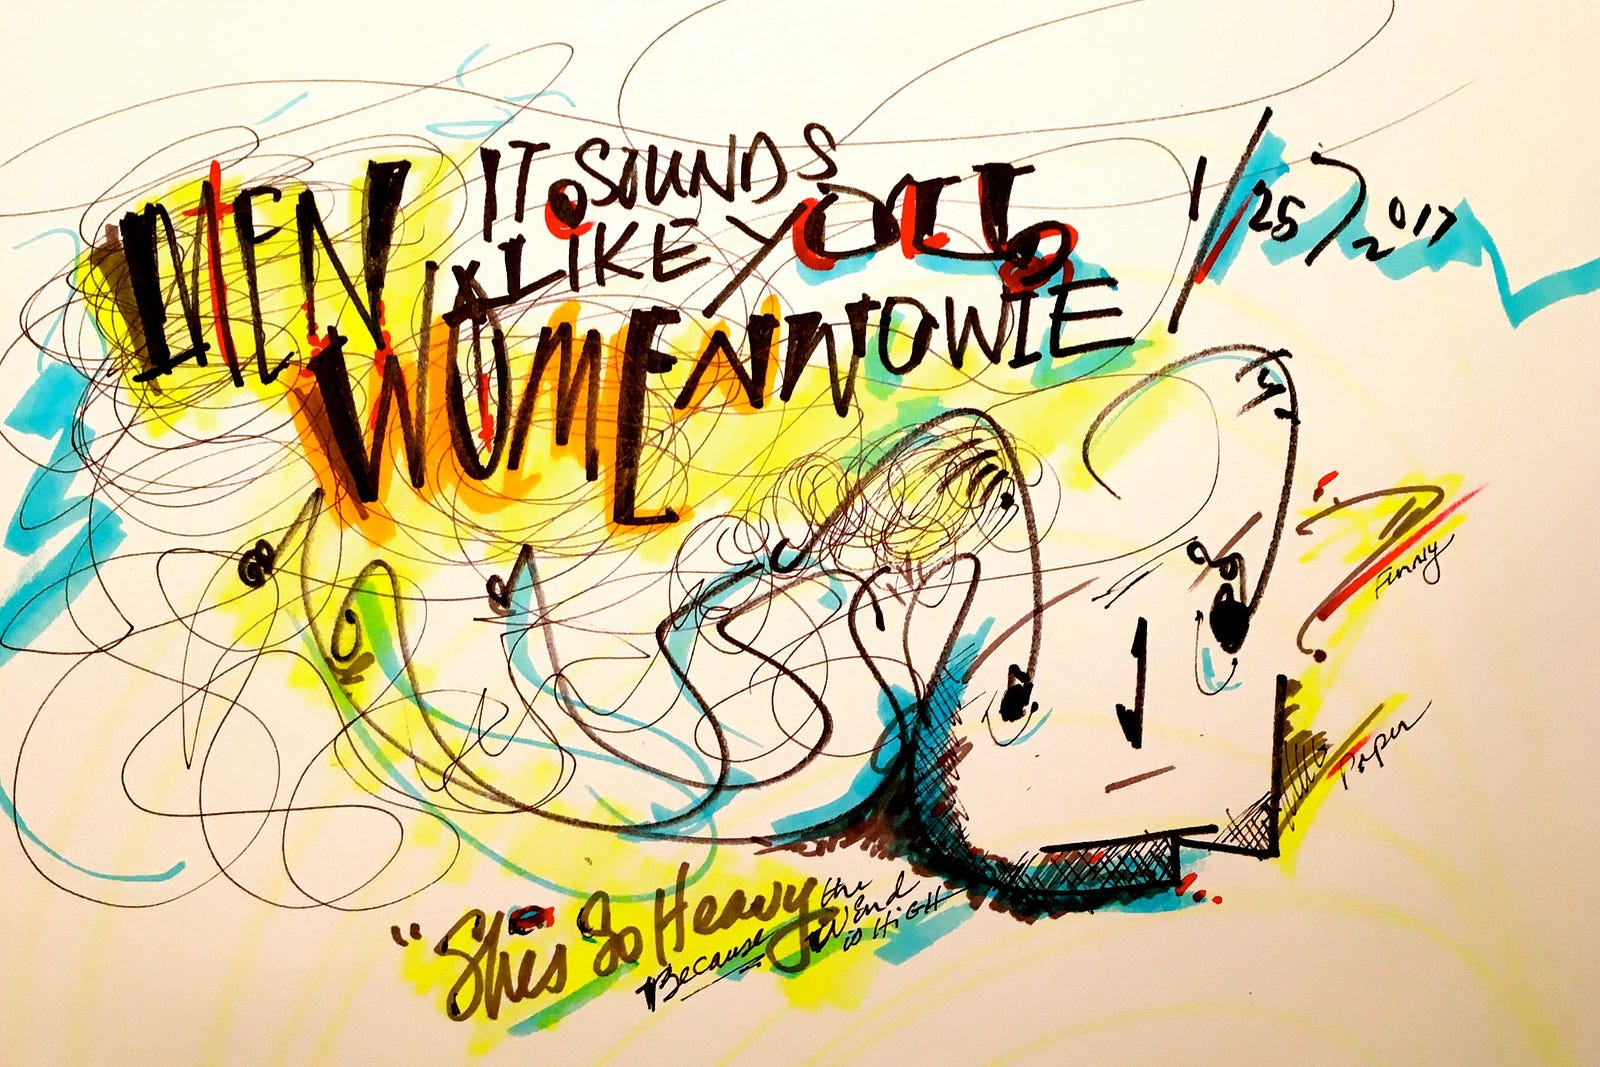 IT SOUNDS
MEN LIKE YOU
WOMEN WOWIE
1/25/2017
Finny
Paper
"She's So Heavy
Because the Wend
is HiGH